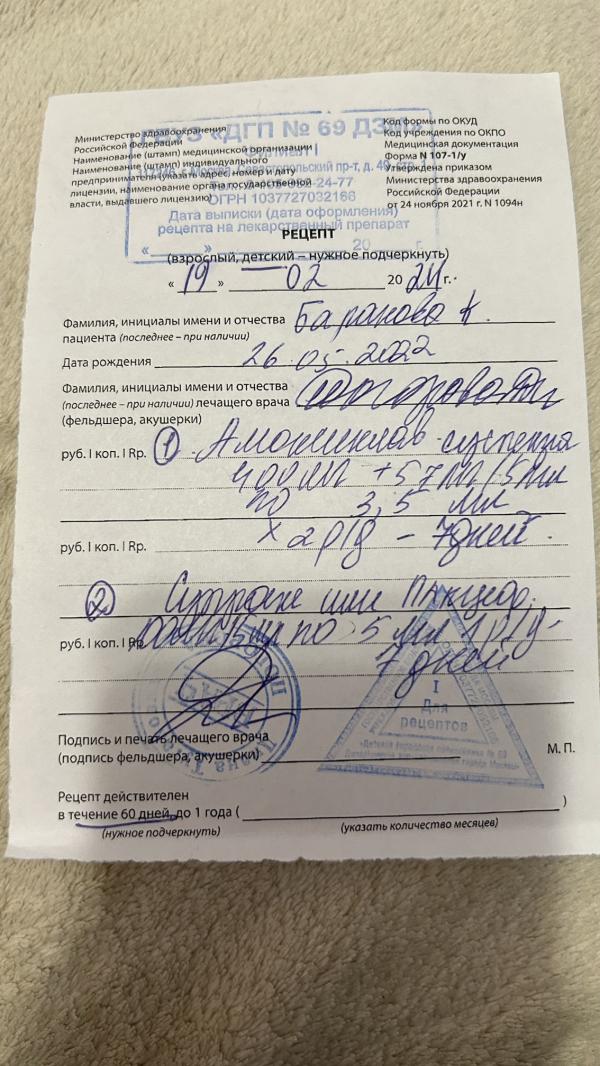 ГБУЗ «ДГП № 69 ДЗМ»
Министерство здравоохранения
Российской Федерации
Наименование (штамп) медицинской организации
Наименование (штамп) индивидуального
предпринимателя (укажите адрес, номер и дату
лицензии, наименование органа государственной
власти, выдавшего лицензию)
Код формы по ОКУД
Код учреждения по ОКПО
Медицинская документация
Форма N 107-1/у
Утверждена приказом
Министерства здравоохранения
Российской Федерации
от 24 ноября 2021 г. N 1094н
Севастопольский пр-т, д.
ОГРН 1037727032166
Дата выписки (дата оформления)
рецепта на лекарственный препарат
« » 20 г.
РЕЦЕПТ
(взрослый, детский – нужное подчеркнуть)
« 19 » 02 20 24 г.
Фамилия, инициалы имени и отчества
пациента (последнее – при наличии)
Дата рождения 26.05.2022
Фамилия, инициалы имени и отчества
(последнее – при наличии) лечащего врача
(фельдшера, акушерки)
руб. I коп. I Rp. 1 Амоксиклав суспензия
400мл +57мл/5мл
по 3,5 мл
руб. I коп. I Rp. х 2 р/д – 7 дней.
2 Супракс или Панцеф.
руб. I коп. I Rp. по 5 мл 1 р/д-
7 дней
I
Для
рецептов
Подпись и печать лечащего врача
(подпись фельдшера, акушерки)
М. П.
Рецепт действителен
в течение 60 дней, до 1 года ( )
(нужное подчеркнуть) (указать количество месяцев)